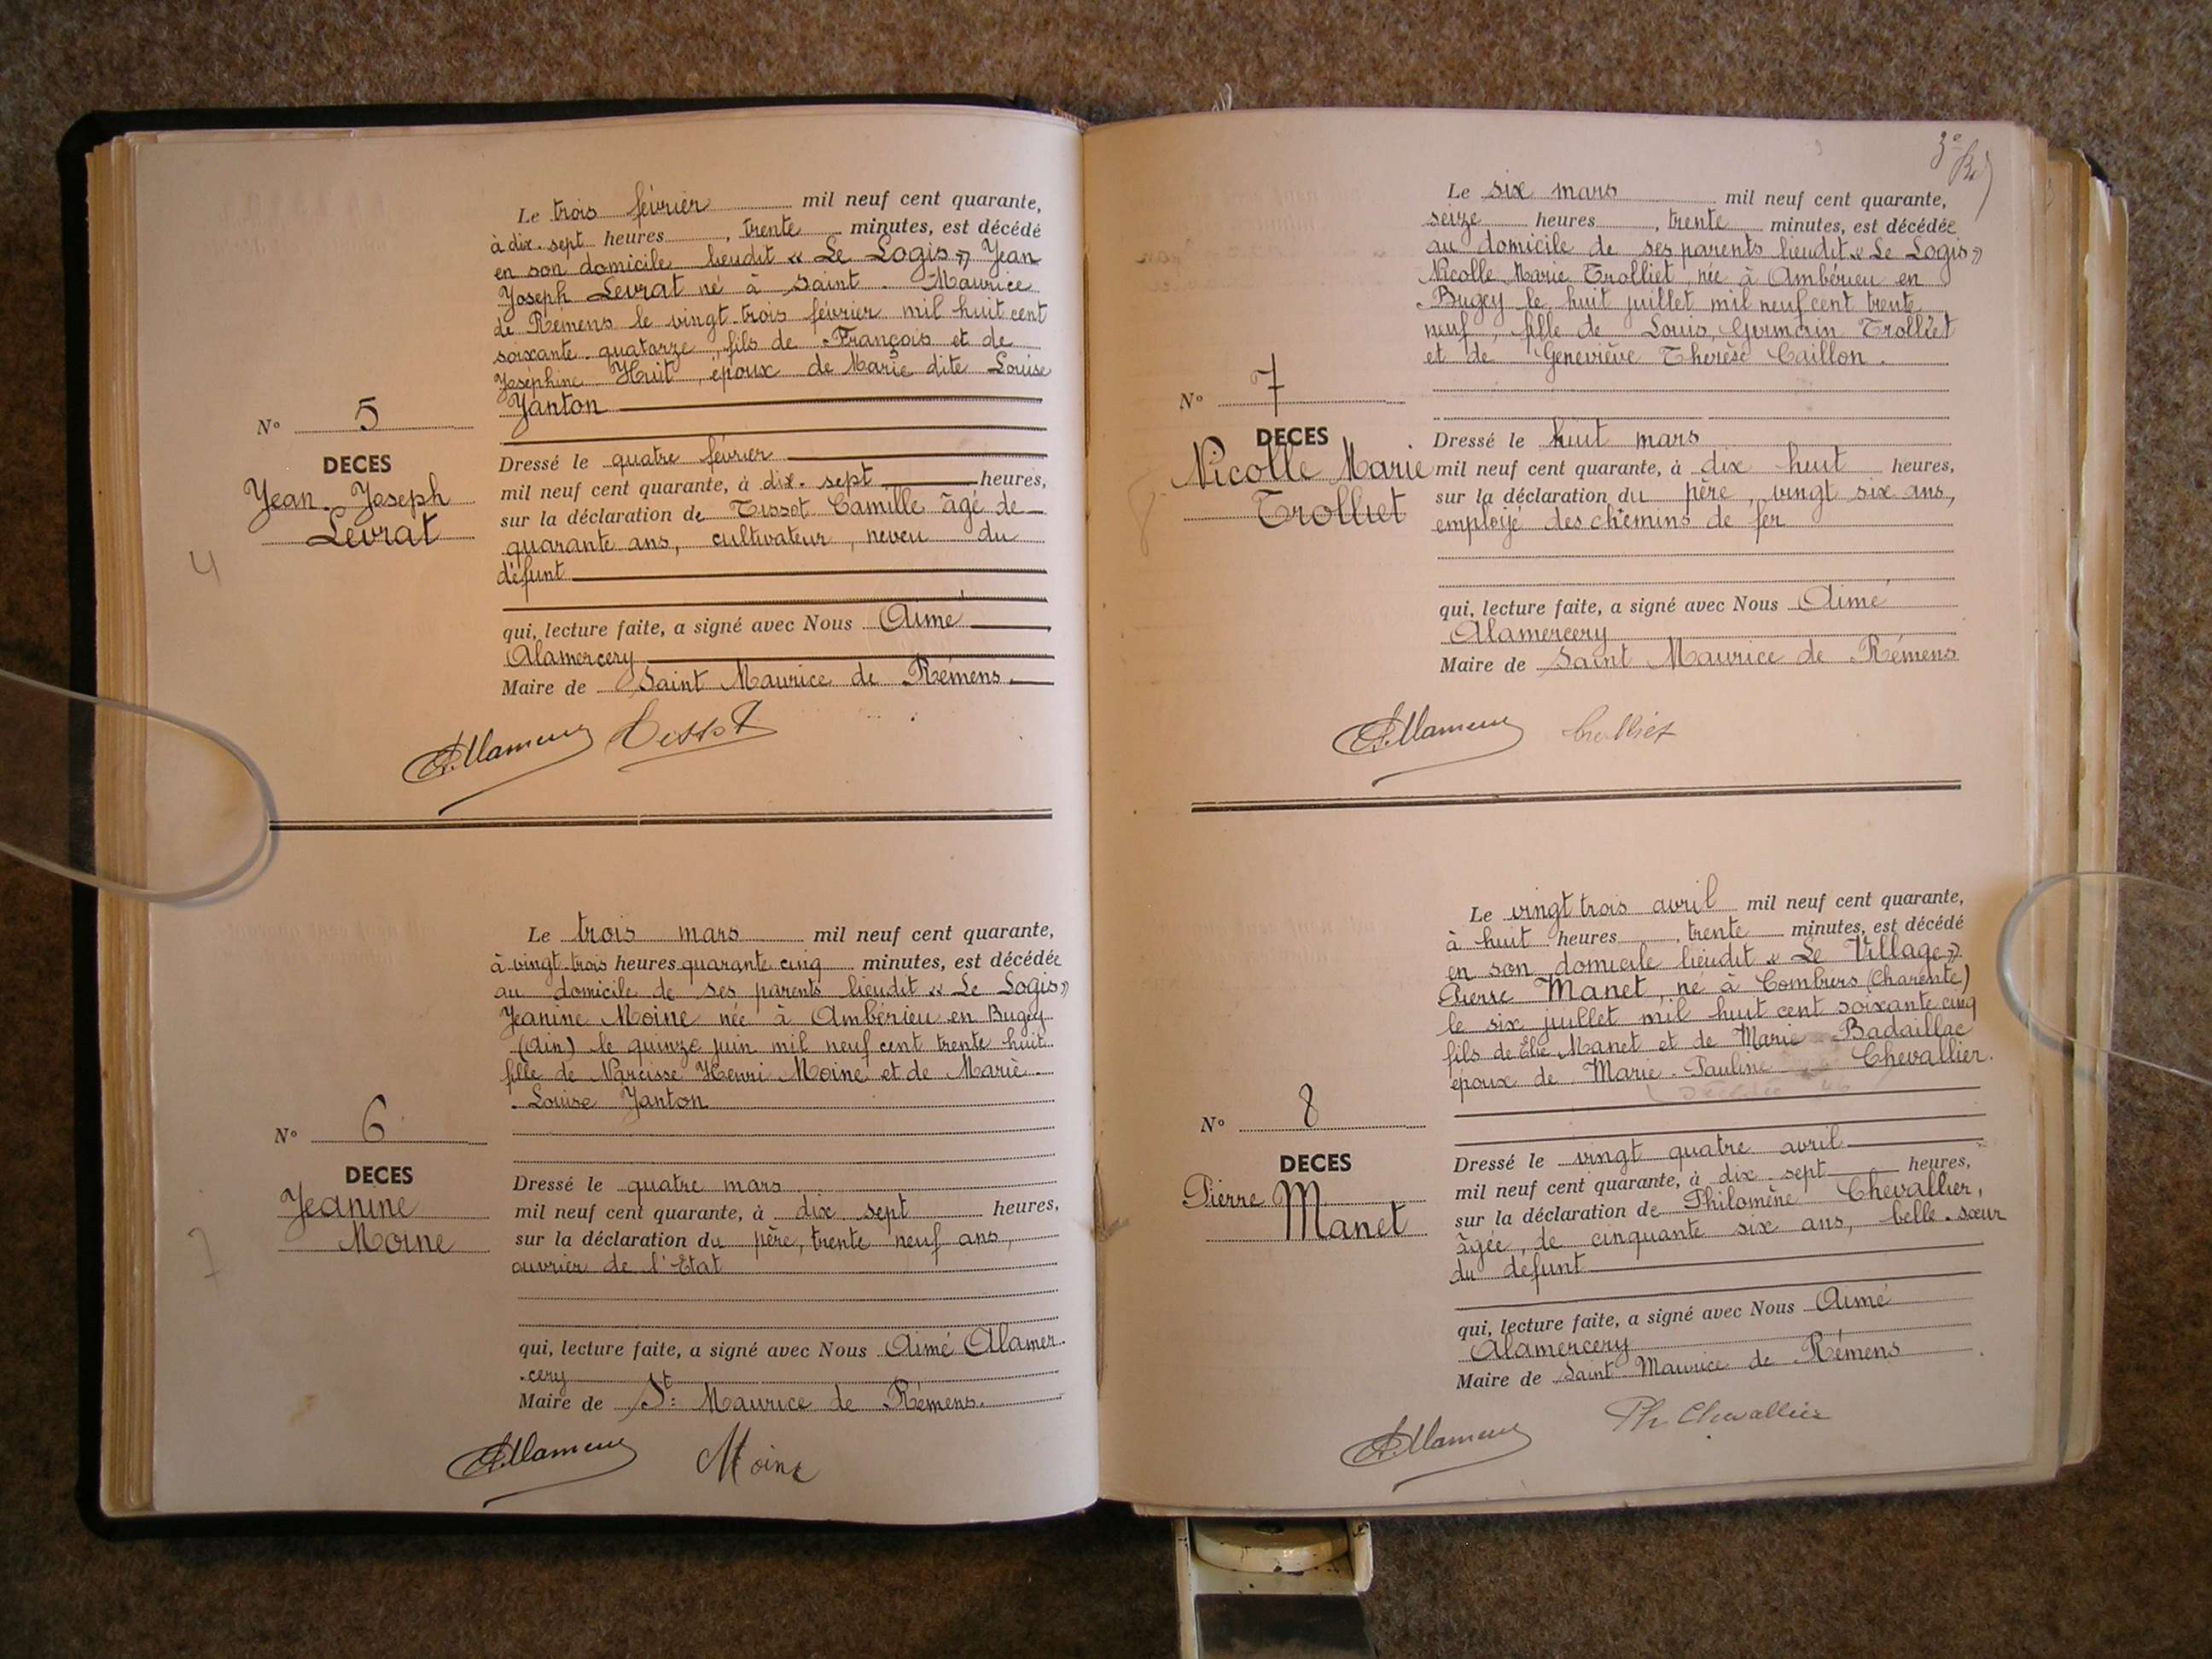 Le trois février mil neuf cent quarante,
à dix-sept heures, trente minutes, est décédé
en son domicile lieudit « Le Logis » Jean
Joseph Levrat né à Saint-Maurice
de Rémens le vingt-trois février mil huit cent
soixante-quatorze, fils de François et de
Joséphine Huit, époux de Marie dite Louise
Janton
N° 5
DECES
Jean-Joseph
Levrat
4
Dressé le quatre février
mil neuf cent quarante, à dix-sept heures,
sur la déclaration de Tissot Camille âgé de
quarante ans, cultivateur, neveu du
défunt
qui, lecture faite, a signé avec Nous Aimé
Alamercery
Maire de Saint Maurice de Rémens.
A. Alamercery Tissot
Le trois mars mil neuf cent quarante,
à vingt-trois heures quarante cinq minutes, est décédée
au domicile de ses parents lieudit « Le Logis »
Jeanine Moine née à Ambérieu en Bugey
(Ain) le quinze juin mil neuf cent trente huit
fille de Narcisse Henri Moine et de Marie-
Louise Janton
N° 6
DECES
Jeanine
Moine
7
Dressé le quatre mars
mil neuf cent quarante, à dix sept heures,
sur la déclaration du père, trente neuf ans,
ouvrier de l'Etat
qui, lecture faite, a signé avec Nous Aimé Alamer-
cery
Maire de St: Maurice de Rémens.
A. Alamercery Moine
3e
Le six mars mil neuf cent quarante,
seize heures, trente minutes, est décédée
au domicile de ses parents lieudit « Le Logis »
Nicolle Marie Trolliet, née à Ambérieu en
Bugey le huit juillet mil neuf cent trente
neuf, fille de Louis, Germain Trolliet
et de Geneviève Thérèse Caillon.
N° 7
DECES
Nicolle Marie
Trolliet
Dressé le huit mars
mil neuf cent quarante, à dix huit heures,
sur la déclaration du père, vingt six ans,
employé des chemins de fer
qui, lecture faite, a signé avec Nous Aimé
Alamercery
Maire de Saint Maurice de Rémens
A. Alamercery Trolliet
Le vingt trois avril mil neuf cent quarante,
à huit heures, trente minutes, est décédé
en son domicile lieudit « Le Village »
Pierre Manet, né à Combiers (Charente)
le six juillet mil huit cent soixante cinq
fils de Elie Manet et de Marie Badaillac
époux de Marie-Pauline Chevallier.
N° 8
DECES
Pierre
Manet
Dressé le vingt quatre avril
mil neuf cent quarante, à dix-sept heures,
sur la déclaration de Philomène Chevallier,
âgée, de cinquante six ans, belle-sœur
du défunt
qui, lecture faite, a signé avec Nous Aimé
Alamercery
Maire de Saint Maurice de Rémens
A. Alamercery Ph Chevallier